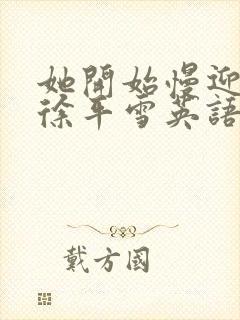 她開始慢迎
徐平雪英語
戴方國